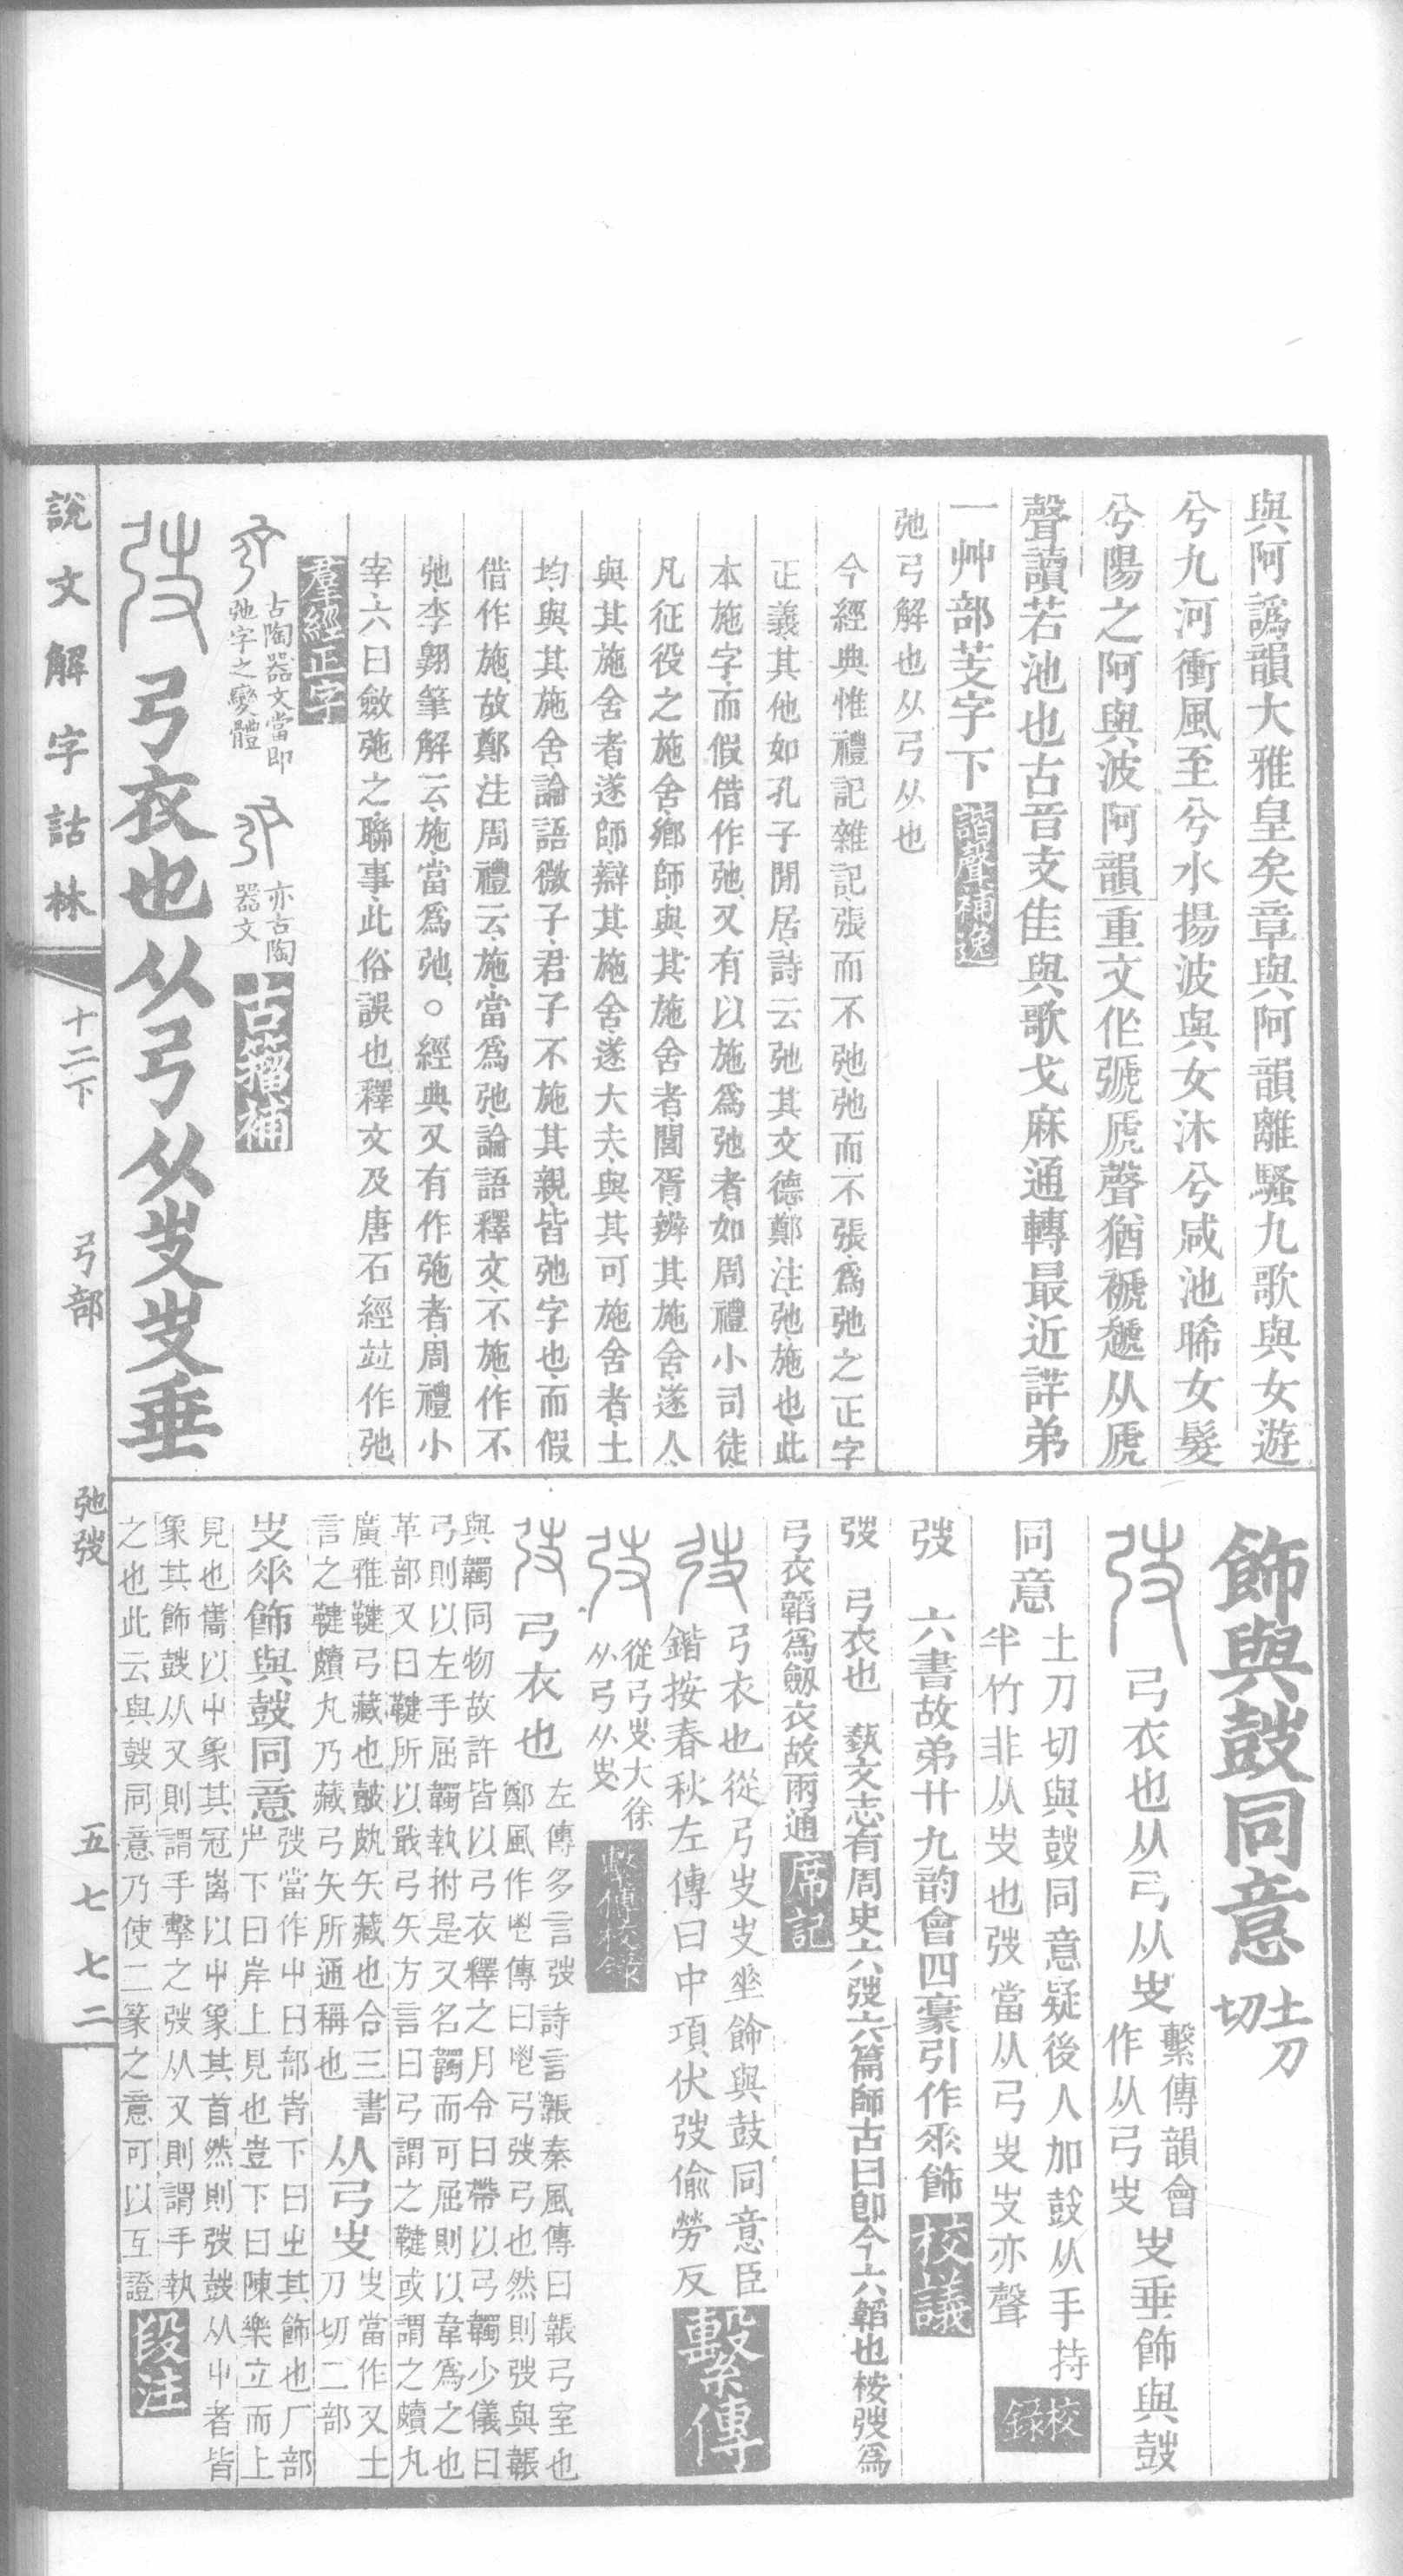 與阿譌韻大雅皇矣章與阿韻離騷九歌與女遊
兮九河衝風至兮水揚波與女沐兮咸池晞女髮
兮陽之阿與波阿韻重文作號虒聲猶褫遞从虒
聲讀若池也古音支佳與歌戈麻通轉最近詳弟
一艸部芰字下 諧聲補逸
弛弓解也从弓从也
今經典惟禮記雜記張而不弛弛而不張爲弛之正字
正義其他如孔子閒居詩云弛其文德鄭注弛施也此
本施字而假借作弛又有以施爲弛者如周禮小司徒
凡征役之施舍鄉師與其施舍者閭胥辨其施舍遂人
與其施舍者遂師辯其施舍遂大夫與其可施舍者土
均與其施舍論語微子君子不施其親皆弛字也而假
借作施故鄭注周禮云施當爲弛論語釋文不施作不
弛李翱筆解云施當爲弛○經典又有作㢮者周禮小
宰六曰斂㢮之聯事此俗誤也釋文及唐石經竝作弛
羣經正字
古陶器文當即
弛字之變體
亦古陶
器文
古籀補
弢 弓衣也从弓从㞢㞢垂
飾與鼓同意 土刀
切
弢 弓衣也从弓从㞢 繫傳韻會
作从弓㞢 㞢垂飾與鼓
同意 土刀切與鼓同意疑後人加鼓从手持
半竹非从㞢也弢當从弓㞢㞢亦聲 校
録
弢 六書故弟廿九韵會四豪引作𠂹飾 校議
弢 弓衣也 蓺文志有周史六弢六篇師古曰卽今六韜也桉弢爲
弓衣韜爲劒衣故兩通 席記
弢 弓衣也從弓㞢㞢垂飾與鼓同意臣
鍇按春秋左傳曰中項伏弢偷勞反 繫傳
弢 從弓㞢大徐
从弓从㞢 繫傳校錄
弢 弓衣也 左傳多言弢詩言韔秦風傳曰韔弓室也
鄭風作鬯傳曰鬯弓弢弓也然則弢與韔
與韣同物故許皆以弓衣釋之月令曰帶以弓韣少儀曰
弓則以左手屈韣執拊是又名韣而可屈則以韋爲之也
革部又曰鞬所以戢弓矢方言曰弓謂之鞬或謂之皾丸
廣雅鞬弓藏也皾㼭矢藏也合三書
言之鞬皾丸乃藏弓矢所通稱也 从弓㞢 㞢當作又土
刀切二部
㞢𠂹飾與鼓同意 弢當作屮曰部岢下曰㞢其飾也厂部
屵下曰岸上見也豈下曰陳樂立而上
見也巂以屮象其冠巂以屮象其首然則弢鼓从屮者皆
象其飾鼓从又則謂手擊之弢从又則謂手執
之也此云與鼓同意乃使二篆之意可以互證 段注
說文解字詁林 十二下 弓部 弛弢 五七七二